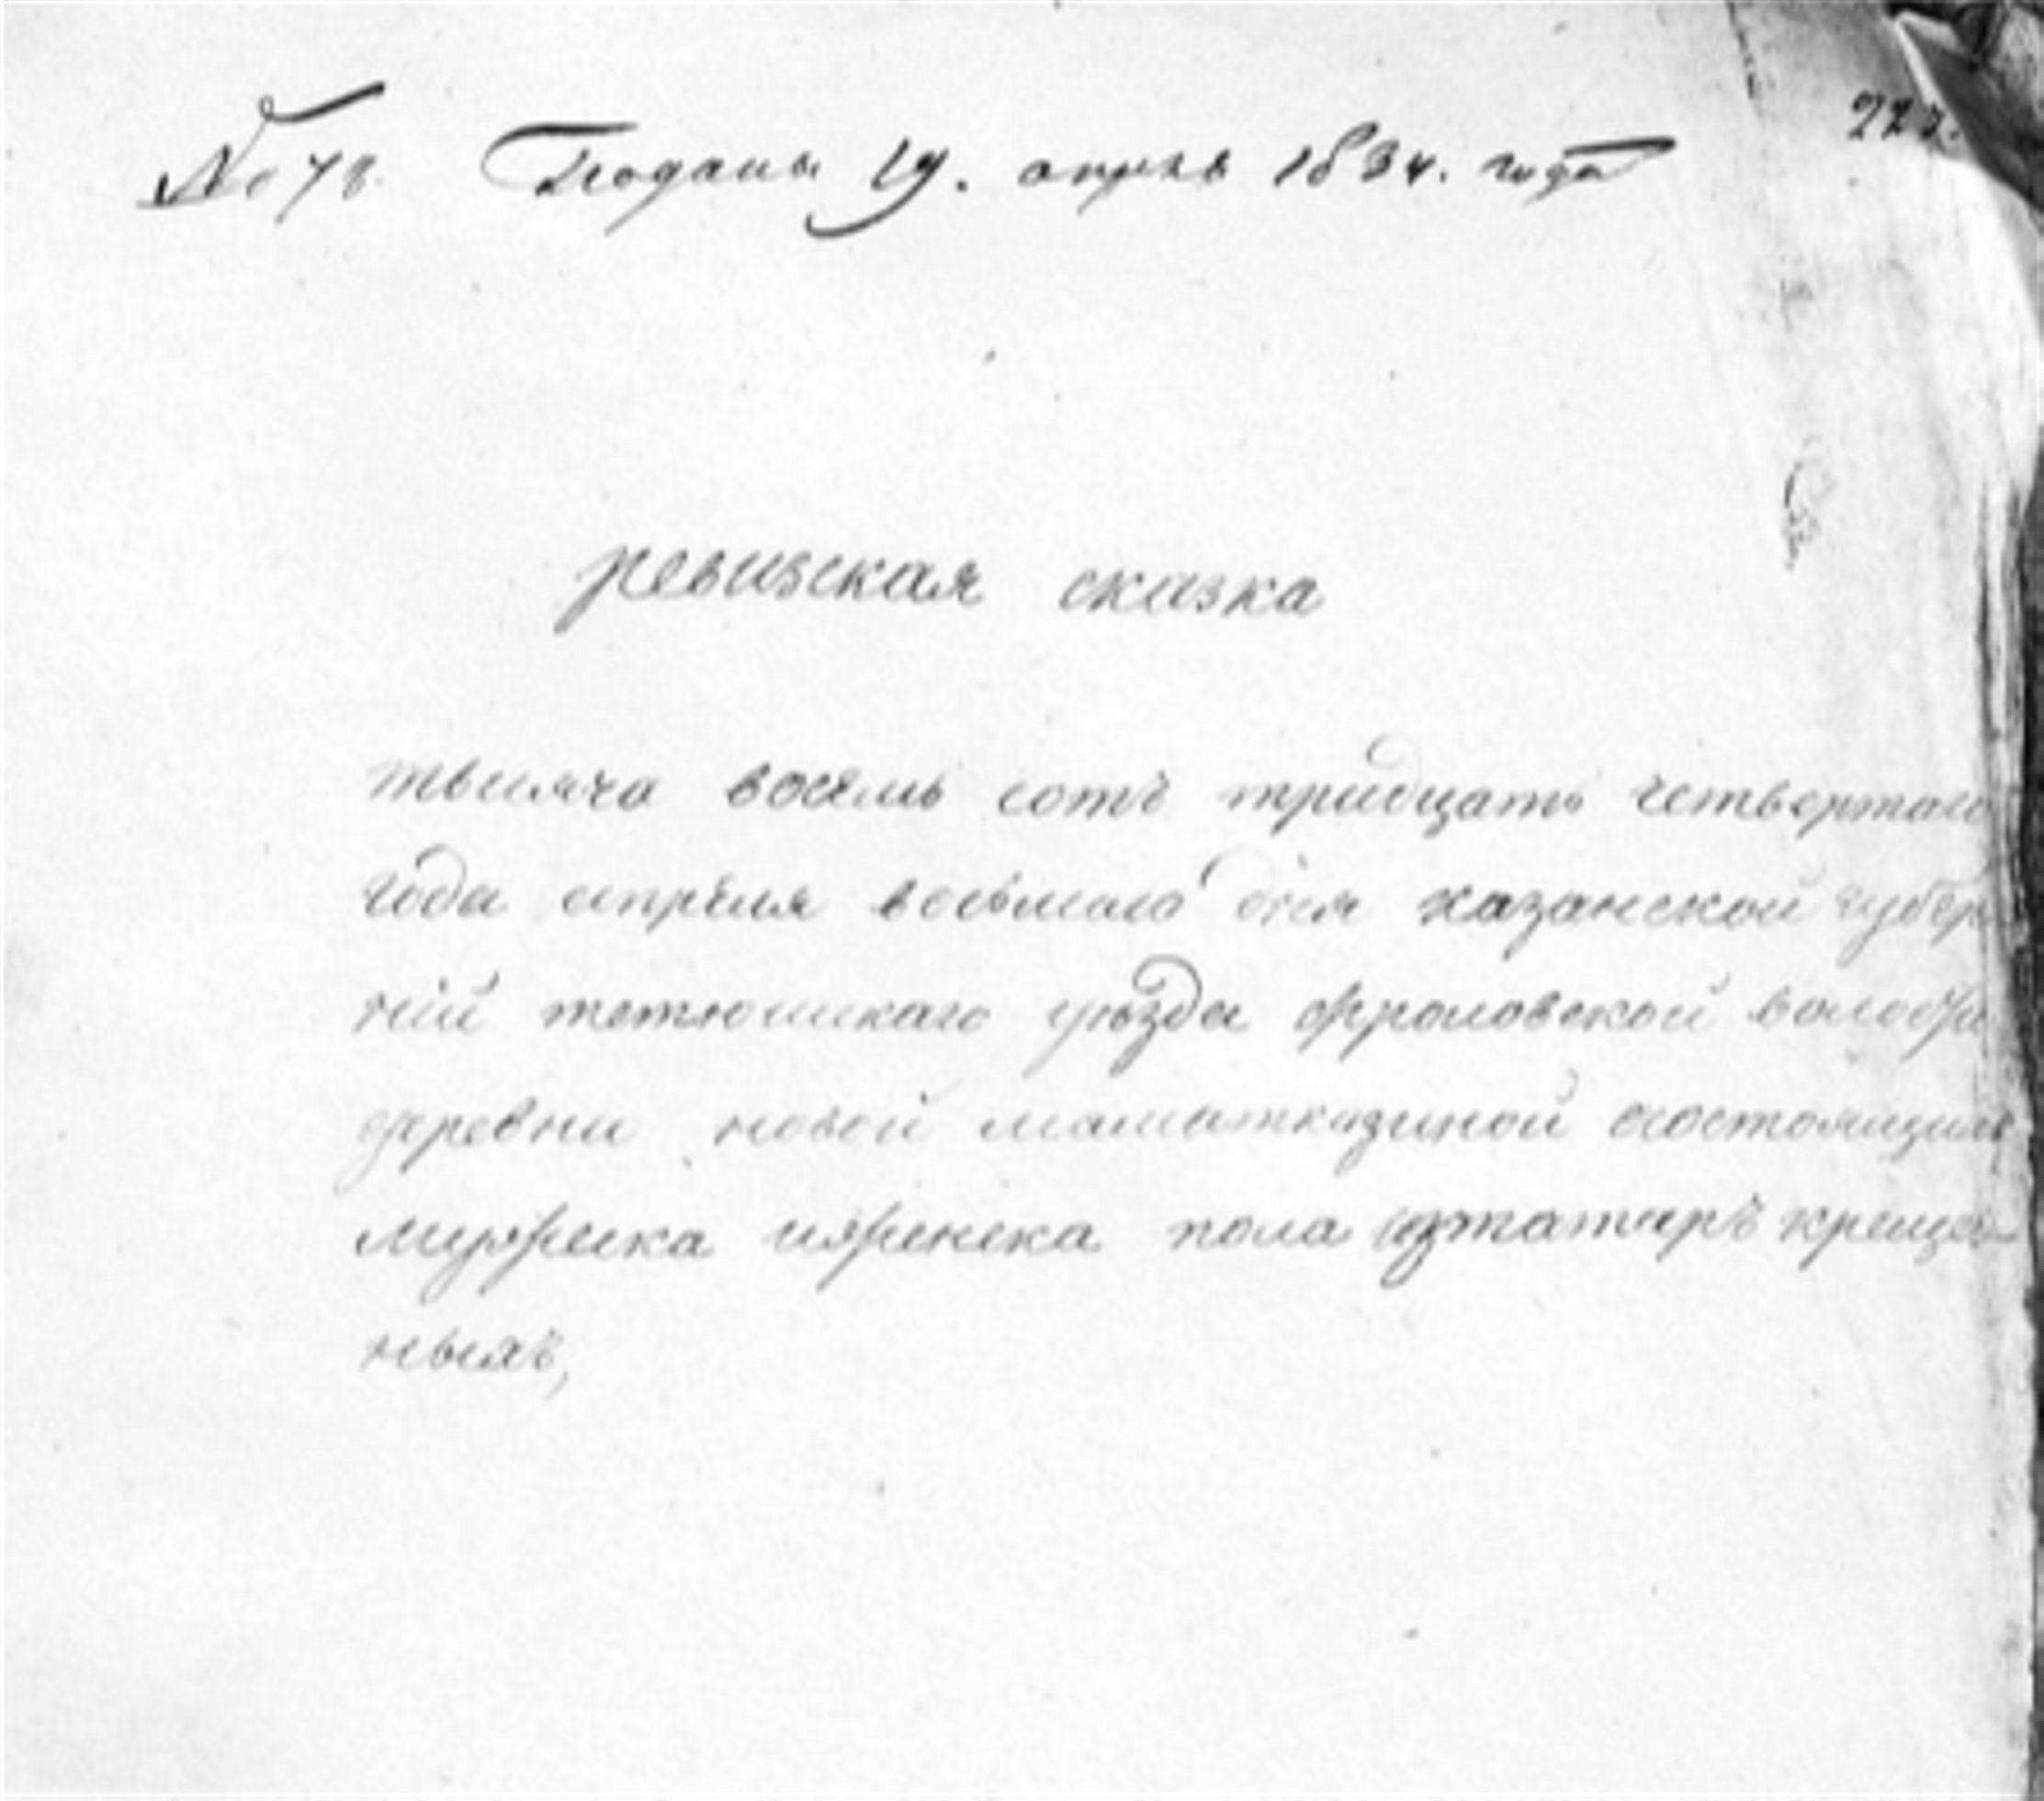 № 78. Поданы 19. апреля 1834. года
ревизская сказка
тысяча восемь сотъ тридцать четвертаго
года апрѣля восьмаго дня казанской губер
ніи тетюшкаго уѣзда фроловской волости
деревни новой маматкозиной состоящимъ
мужеска иженска пола изтатаръ креще
ныхъ,